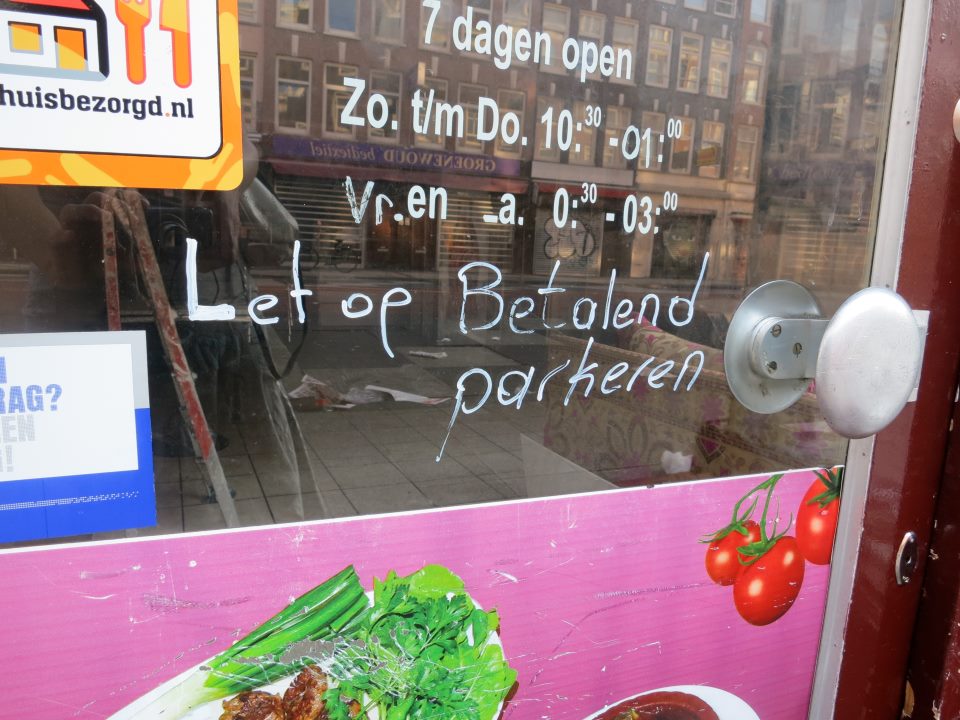 huisbezorgd.nl
7 dagen open
Zo. t/m Do. 10:30 - 01:00
Vr. en a. 0:30 - 03:00
GROENEWOUD bedtextiel
Let op Betalend
parkeren
RAG?
EN